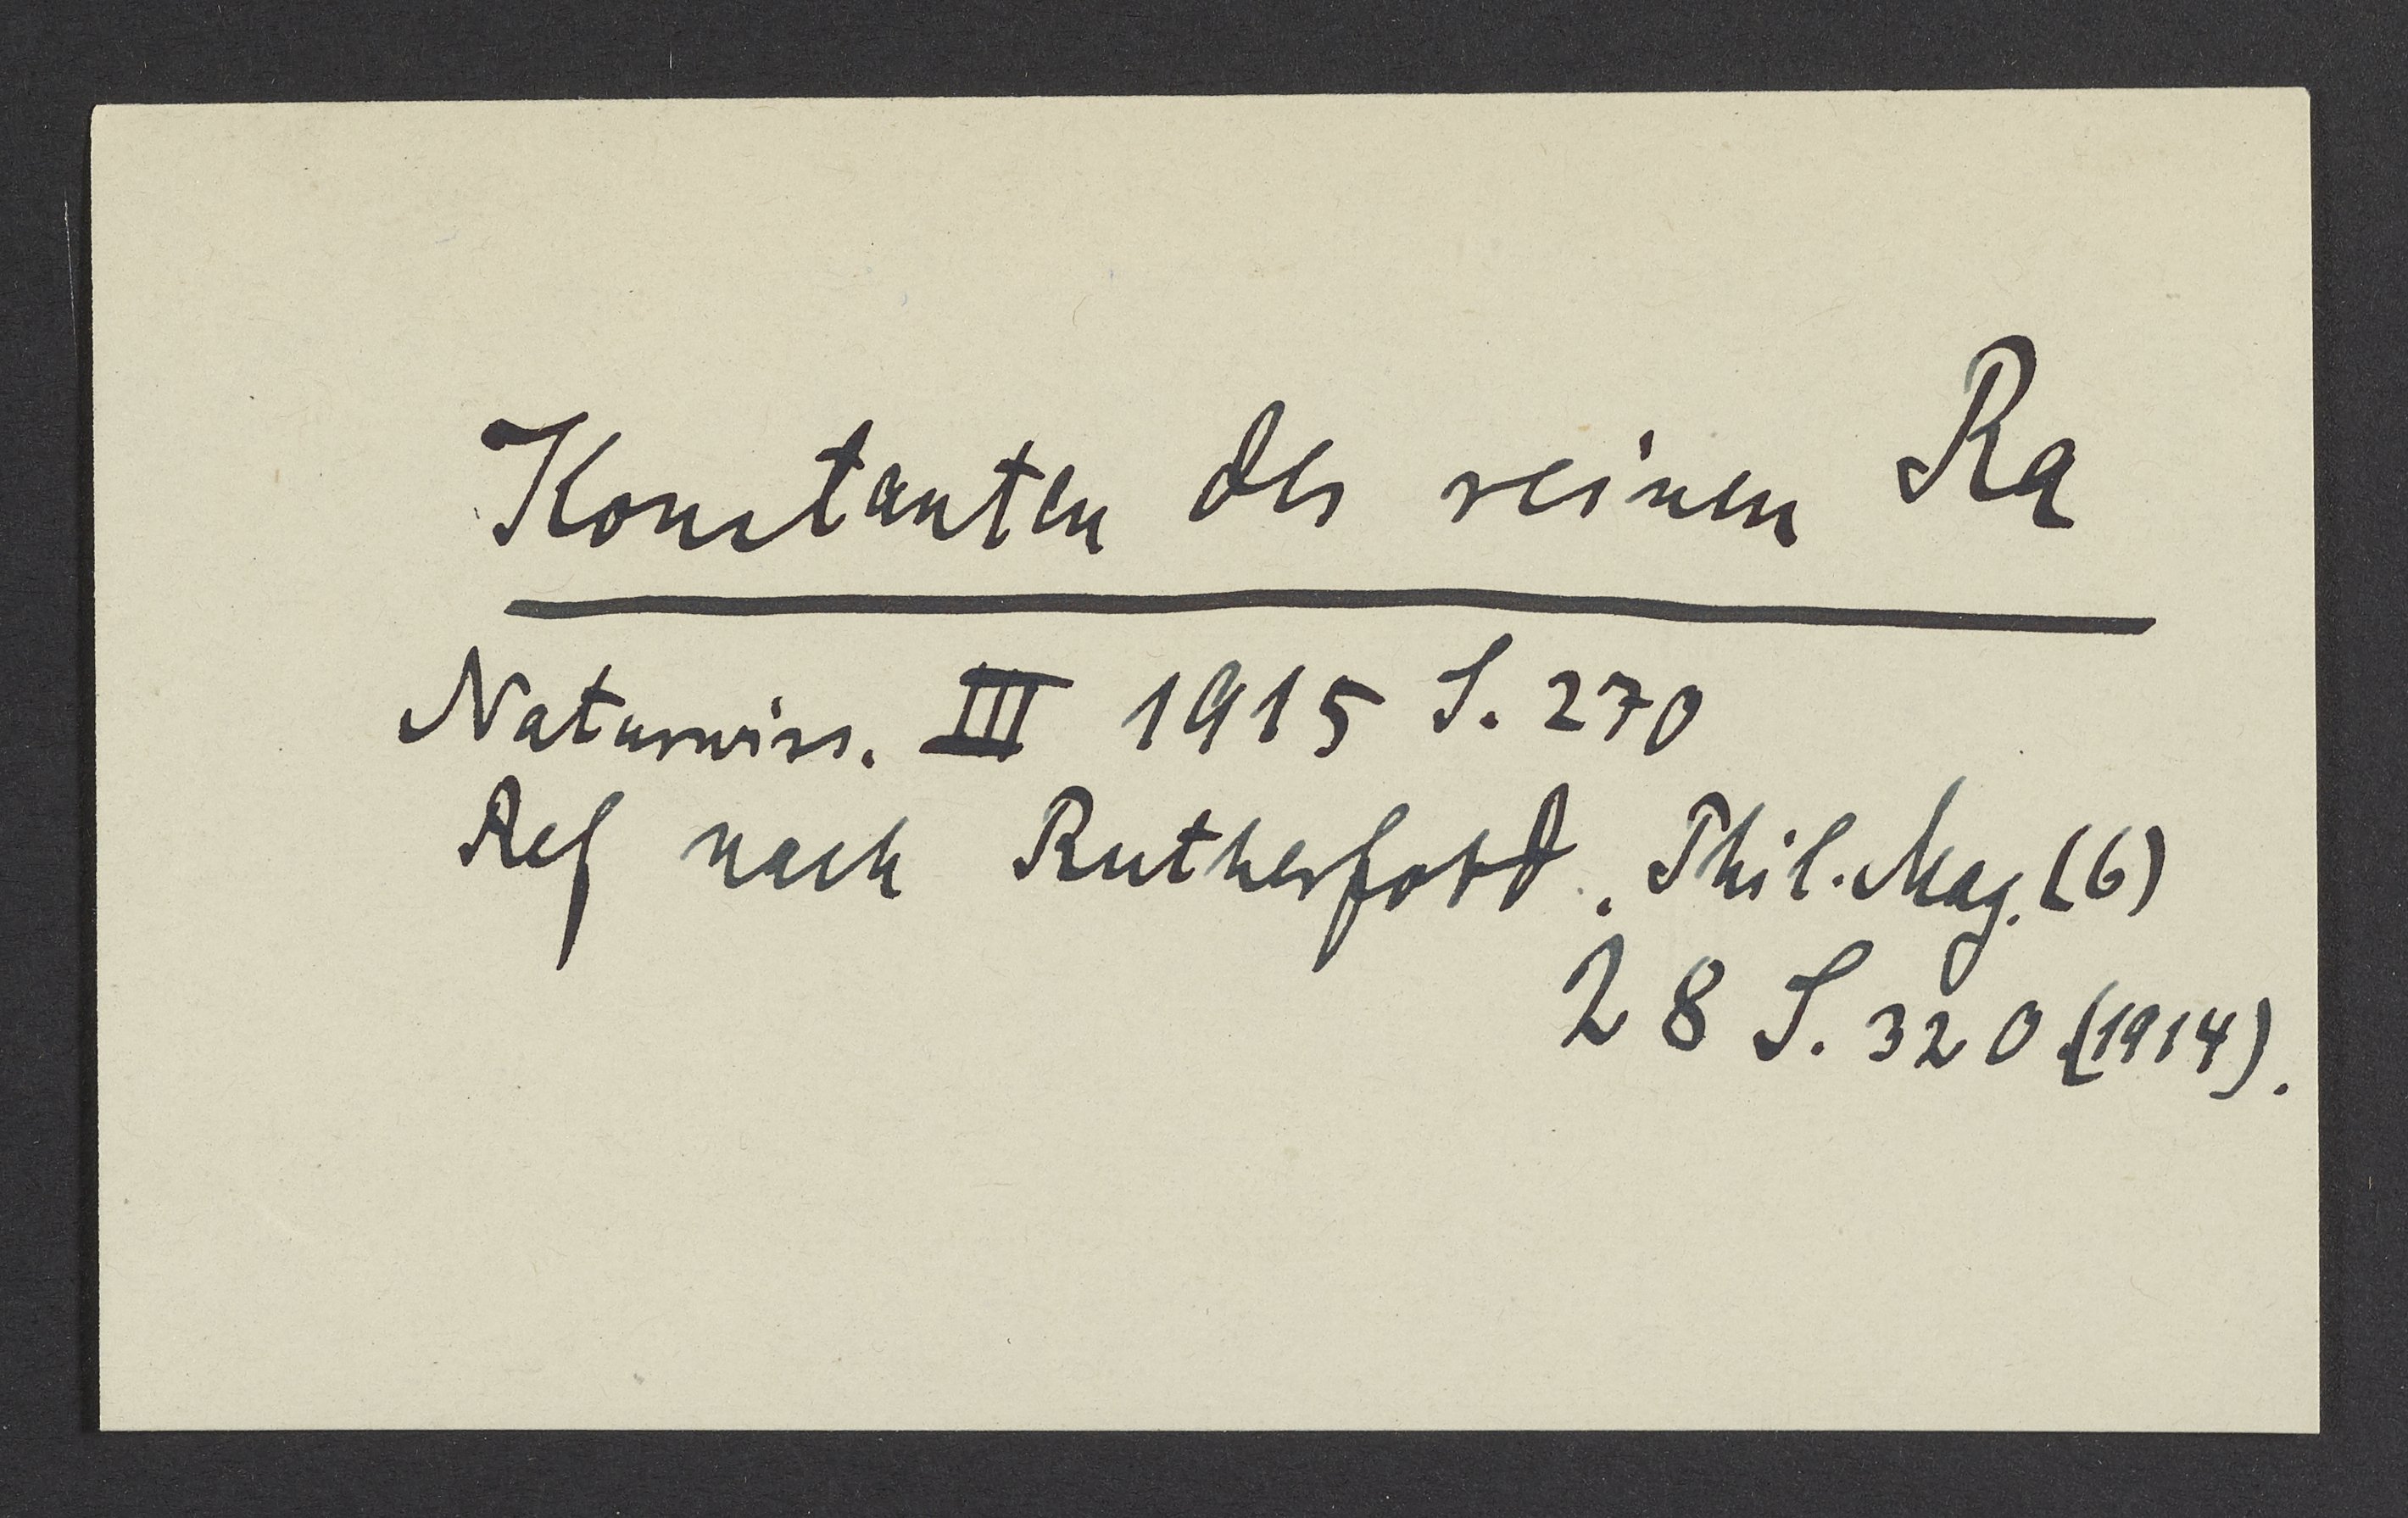 Konstanten des reinen Ra
Naturwiss. III 1915 S. 270
Ref nach Rutherford. Phil. Mag. (6)
28 S. 320 (1914).